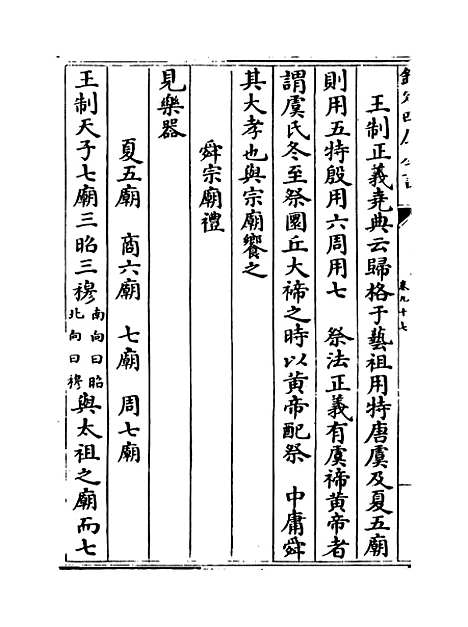 卷九十七
王制正義堯典云歸格于藝祖用特唐虞及夏五廟
則用五特殷用六周用七　祭法正義有虞禘黃帝者
謂虞氏冬至祭圜丘大禘之時以黃帝配祭　中庸舜
其大孝也與宗廟饗之
舜宗廟禮
見樂器
夏五廟　商六廟　七廟　周七廟
王制天子七廟三昭三穆南向曰昭北向曰穆與太祖之廟而七